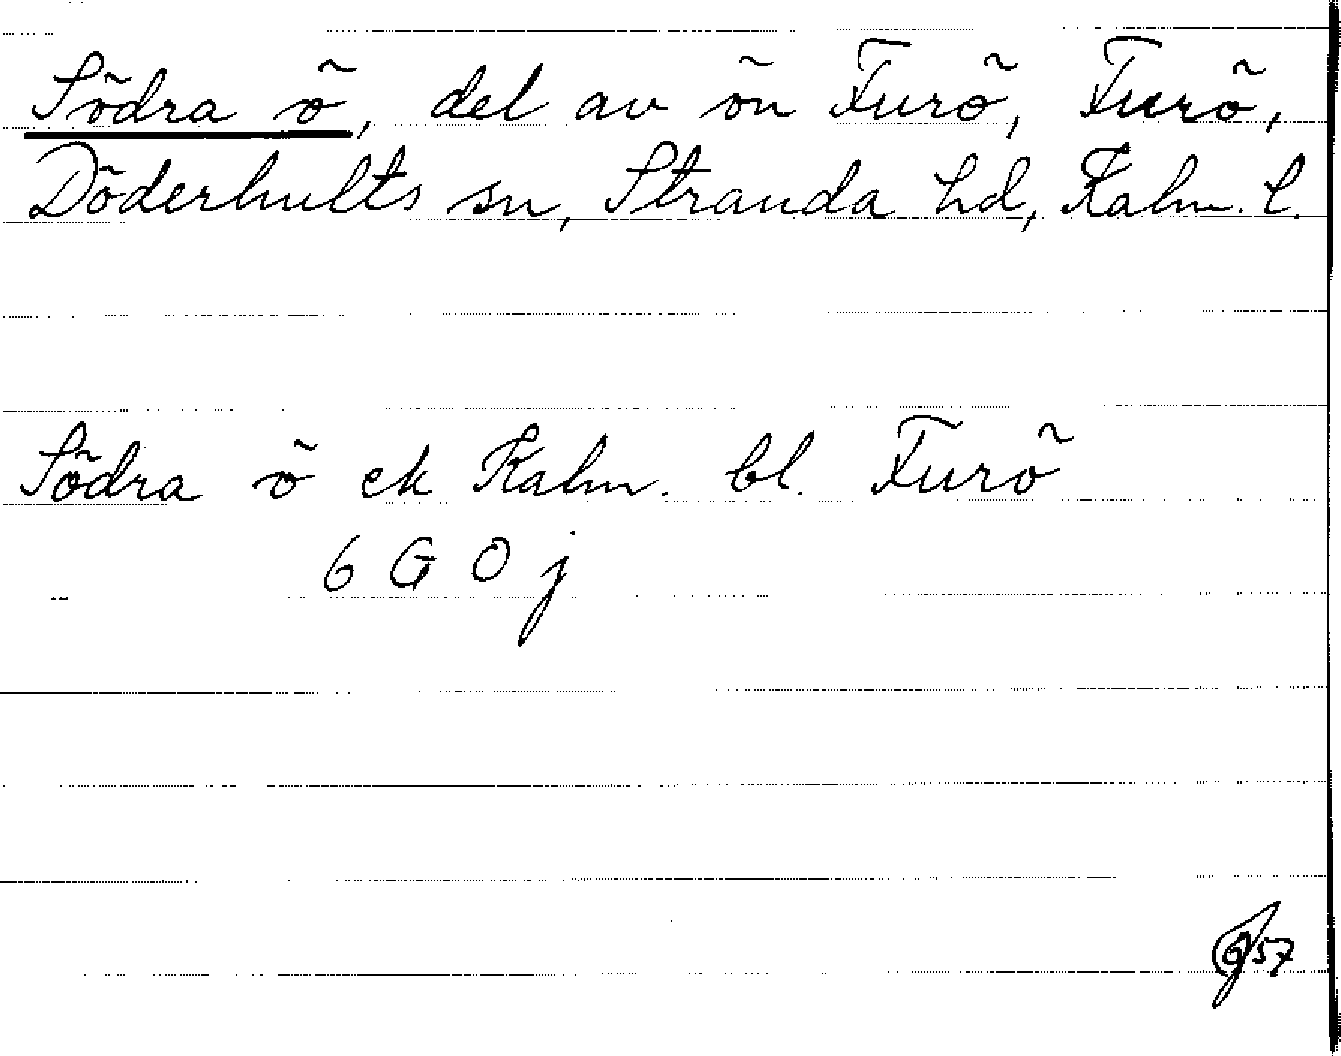 Södra ö, del av ön Furö, Furö,
Döderhults sn, Stranda hd, Kalm. l.
Södra ö ek Kalm. bl. Furö
6 G 0 j
57